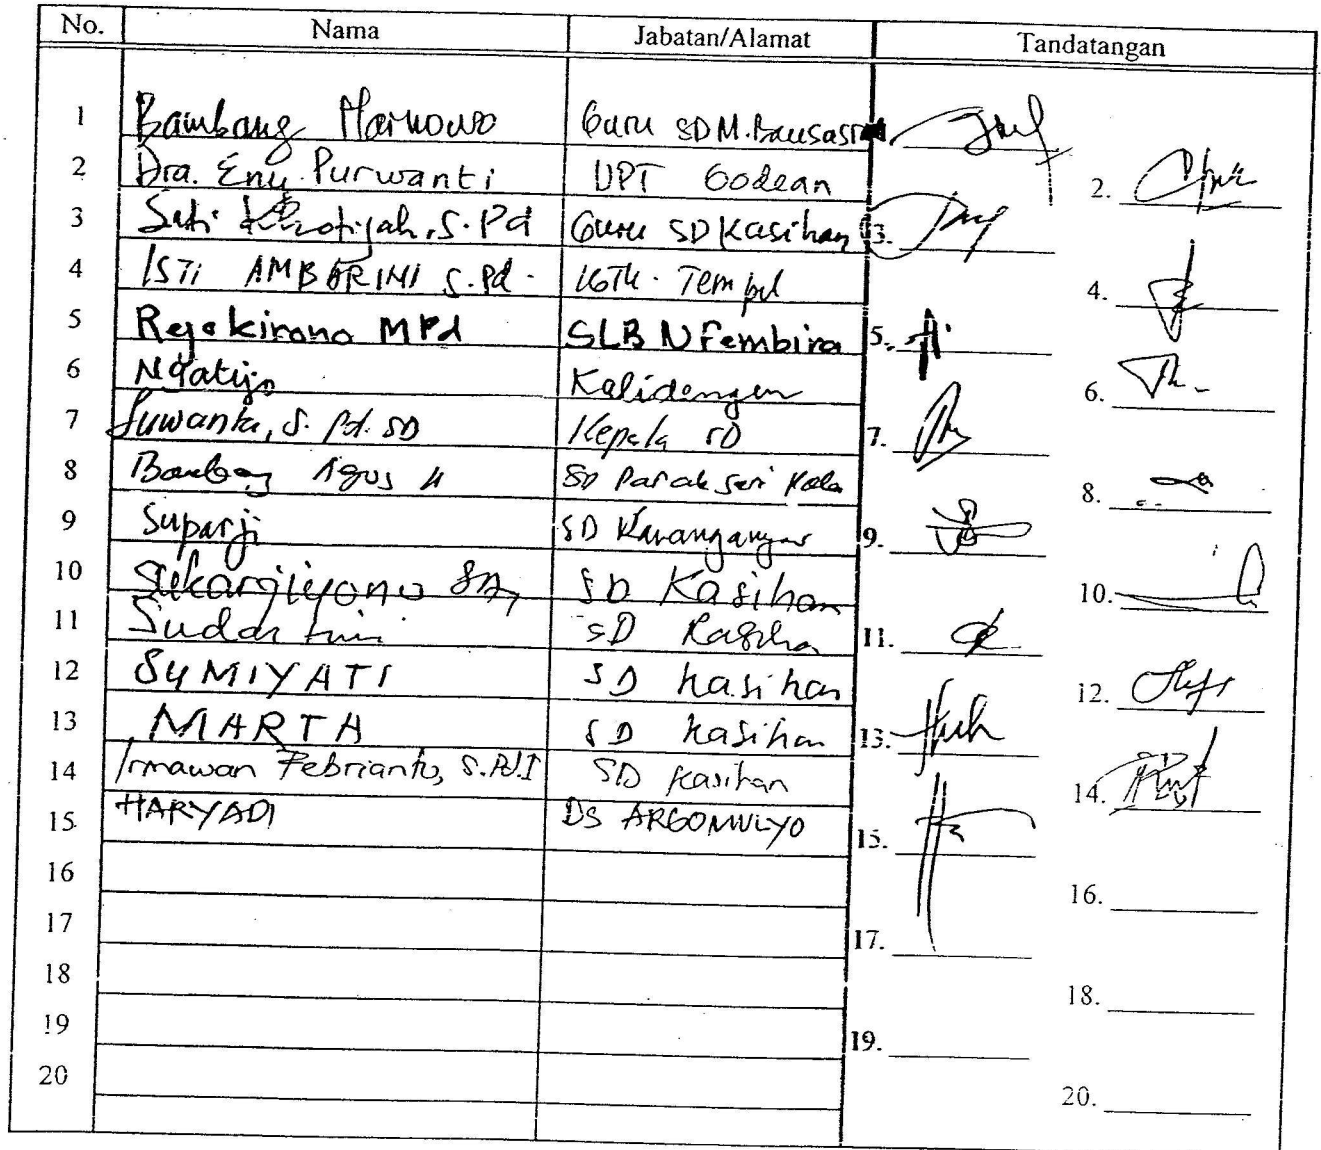 No. Nama Jabatan/Alamat Tandatangan
1 Bambang Guru SD M. Bausasran
2 Dra. Eny Purwanti UPT Godean 2.
3 Siti S.Pd Guru SD Kasihan 3.
4 ISTI AMBARINI S.Pd. Tempel 4.
5 Rejokirono MPd SLB N Pembina 5.
6 Ngatijo Kalidengen 6.
7 Suwanta, S.Pd.SD Kepala SD 7.
8 Bambang Agus SD 8.
9 Suparji SD Karanganyar 9.
10 Sukargiyono SD Kasihan 10.
11 SD Kasihan 11.
12 SUMIYATI SD Kasihan 12.
13 MARTA SD Kasihan 13.
14 Irmawan Febrianto, S.Pd.I SD Kasihan 14.
15 HARYADI DS ARGOMULYO 15.
16 16.
17 17.
18 18.
19 19.
20 20.